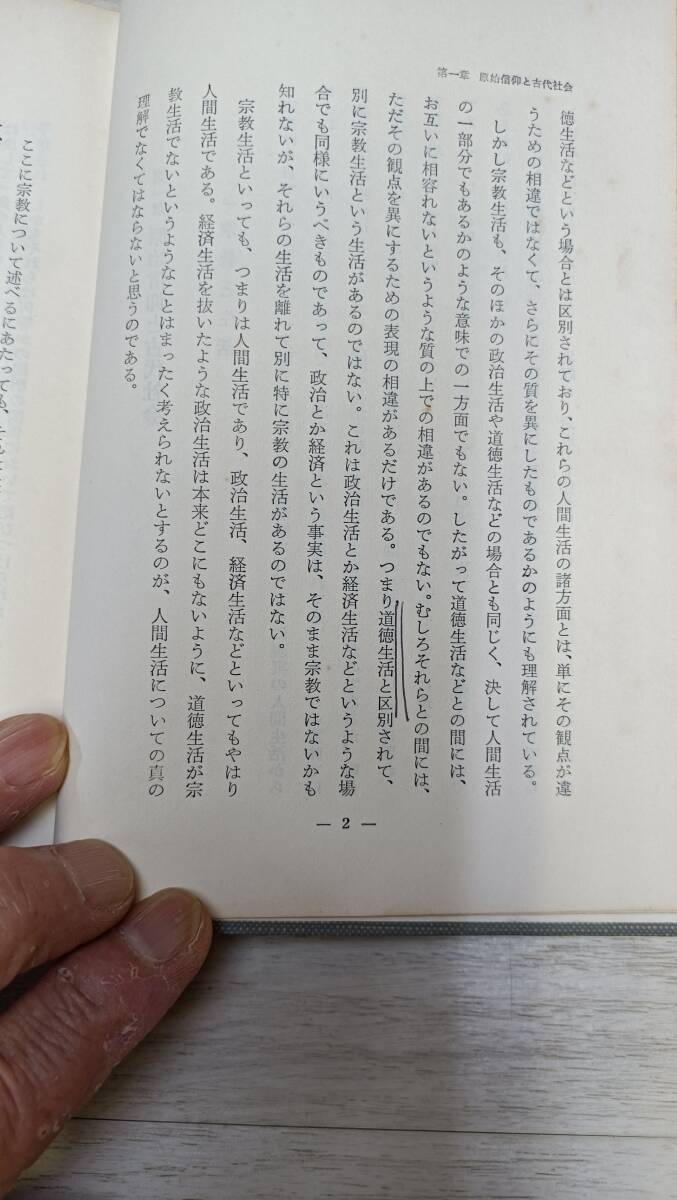 第一章 原始信仰と古代社会
徳生活などという場合とは区別されており、これらの人間生活の諸方面とは、単にその観点が違
うための相違ではなくて、さらにその質を異にしたものであるかのようにも理解されている。
しかし宗教生活も、そのほかの政治生活や道徳生活などの場合とも同じく、決して人間生活
の一部分でもあるかのような意味での一方面でもない。したがって道徳生活などとの間には、
お互いに相容れないというような質の上での相違があるのでもない。むしろそれらとの間には、
ただその観点を異にするための表現の相違があるだけである。つまり道徳生活と区別されて、
別に宗教生活という生活があるのではない。これは政治生活とか経済生活などというような場
合でも同様にいうべきものであって、政治とか経済という事実は、そのまま宗教ではないかも
知れないが、それらの生活を離れて別に特に宗教の生活があるのではない。
宗教生活といっても、つまりは人間生活であり、政治生活、経済生活などといってもやはり
人間生活である。経済生活を抜いたような政治生活は本来どこにもないように、道徳生活が宗
教生活でないというようなことはまったく考えられないとするのが、人間生活についての真の
理解でなくてはならないと思うのである。
— 2 —
ここに宗教について述べるにあたっても、